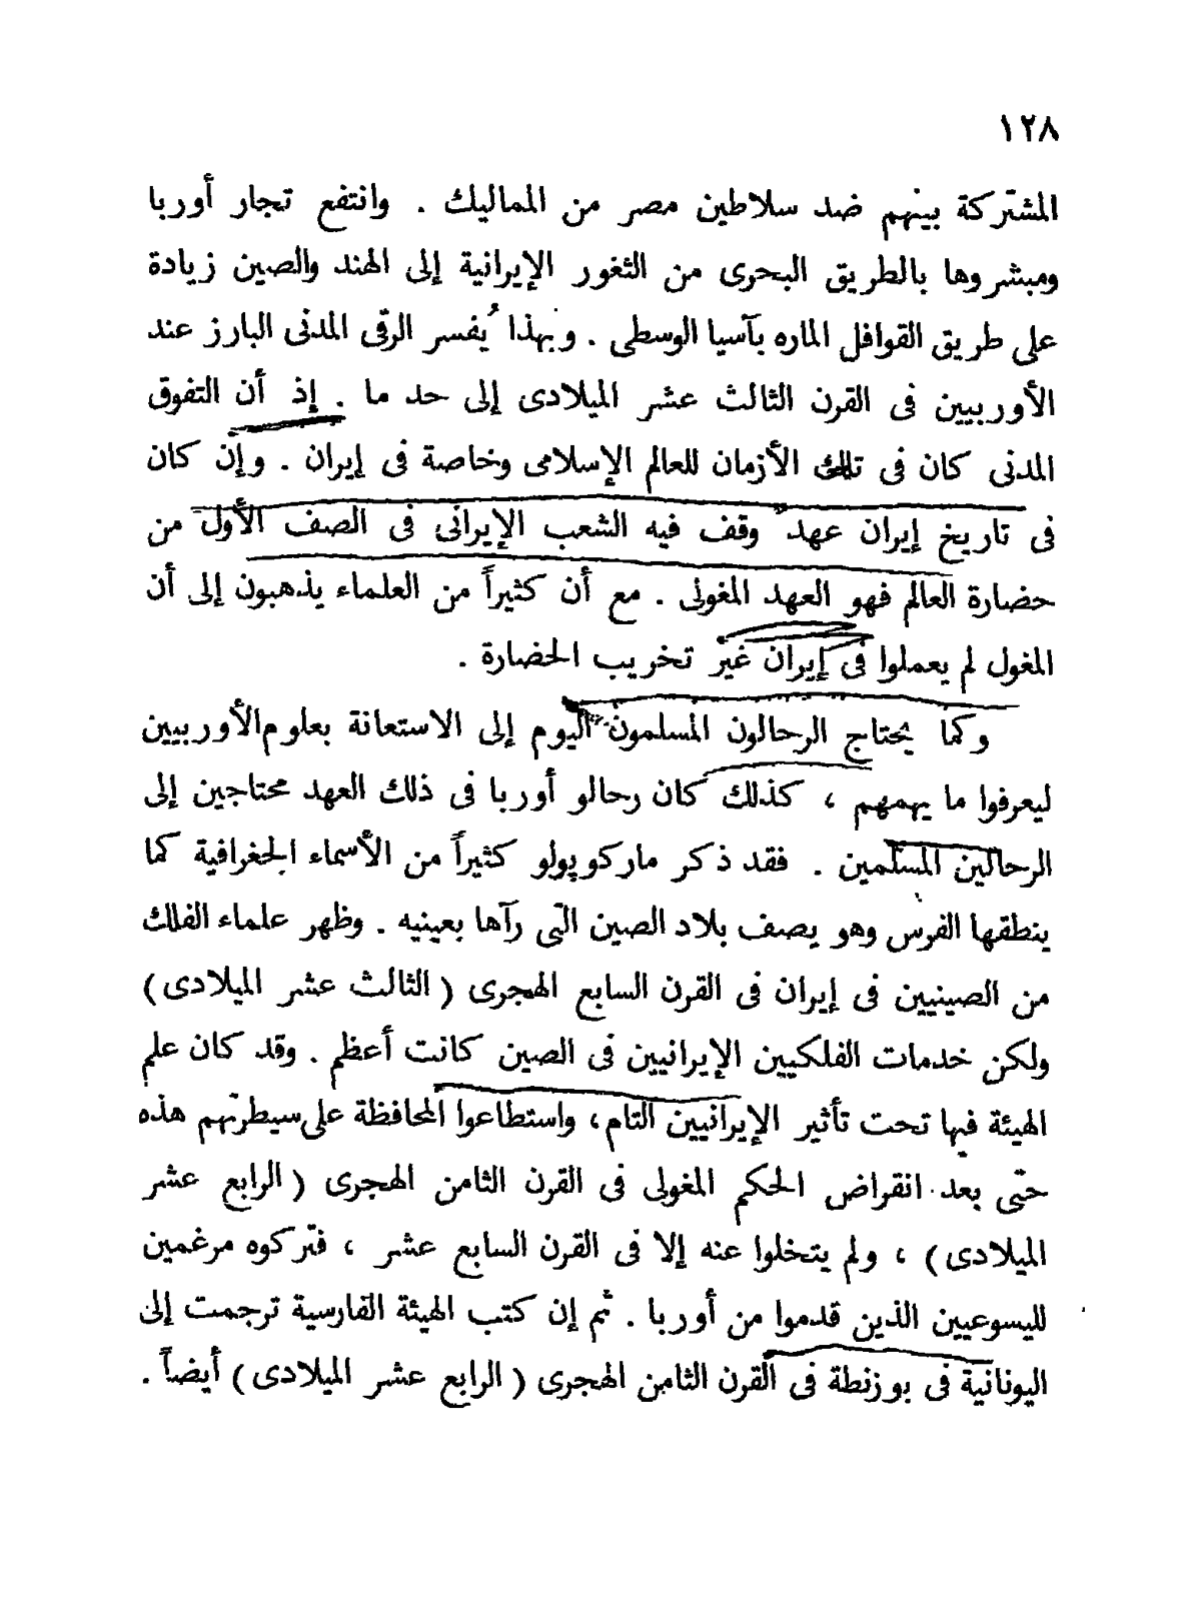 ١٢٨
المشتركة بينهم ضد سلاطين مصر من المماليك . وانتفع تجار أوربا
ومبشروها بالطريق البحرى من الثغور الإيرانية إلى الهند والصين زيادة
على طريق القوافل الماره بآسيا الوسطى . وبهذا يُفسر الرقى المدنى البارز عند
الأوربيين فى القرن الثالث عشر الميلادى إلى حد ما . إذ أن التفوق
المدنى كان فى تلك الأزمان للعالم الإسلامى وخاصة فى إيران . وإن كان
فى تاريخ إيران عهد وقف فيه الشعب الإيرانى فى الصف الأول من
حضارة العالم فهو العهد المغولى . مع أن كثيراً من العلماء يذهبون إلى أن
المغول لم يعملوا فى إيران غير تخريب الحضارة .
وكما يحتاج الرحالون المسلمون اليوم إلى الاستعانة بعلوم الأوربيين
ليعرفوا ما يهمهم ، كذلك كان رحالو أوربا فى ذلك العهد محتاجين إلى
الرحالين المسلمين . فقد ذكر ماركوپولو كثيراً من الأسماء الجغرافية كما
ينطقها الفرس وهو يصف بلاد الصين التى رآها بعينيه . وظهر علماء الفلك
من الصينيين فى إيران فى القرن السابع الهجرى ( الثالث عشر الميلادى )
ولكن خدمات الفلكيين الإيرانيين فى الصين كانت أعظم . وقد كان علم
الهيئة فيها تحت تأثير الإيرانيين التام ، واستطاعوا المحافظة على سيطرتهم هذه
حتى بعد انقراض الحكم المغولى فى القرن الثامن الهجرى ( الرابع عشر
الميلادى ) ، ولم يتخلوا عنه إلا فى القرن السابع عشر ، فتركوه مرغمين
لليسوعيين الذين قدموا من أوربا . ثم إن كتب الهيئة الفارسية ترجمت إلى
اليونانية فى بوزنطة فى القرن الثامن الهجرى ( الرابع عشر الميلادى ) أيضاً .